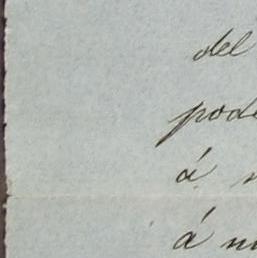 del
pode
á
á